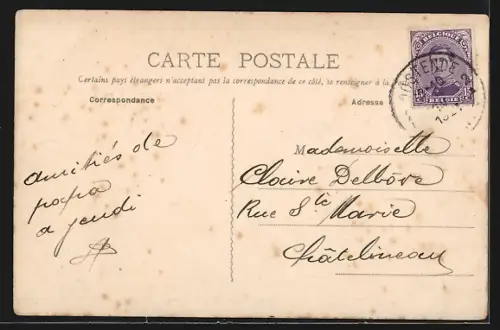 BELGIQUE
15 15
BELGIË
OOSTENDE
CARTE POSTALE
Certains pays étrangers n'acceptant pas la correspondance de ce côté, se renseigner à la
Correspondance
Adresse
amitiés de
papa
a jeudi
Mademoiselle
Claire Delbove
Rue Ste Marie
Châtelineau